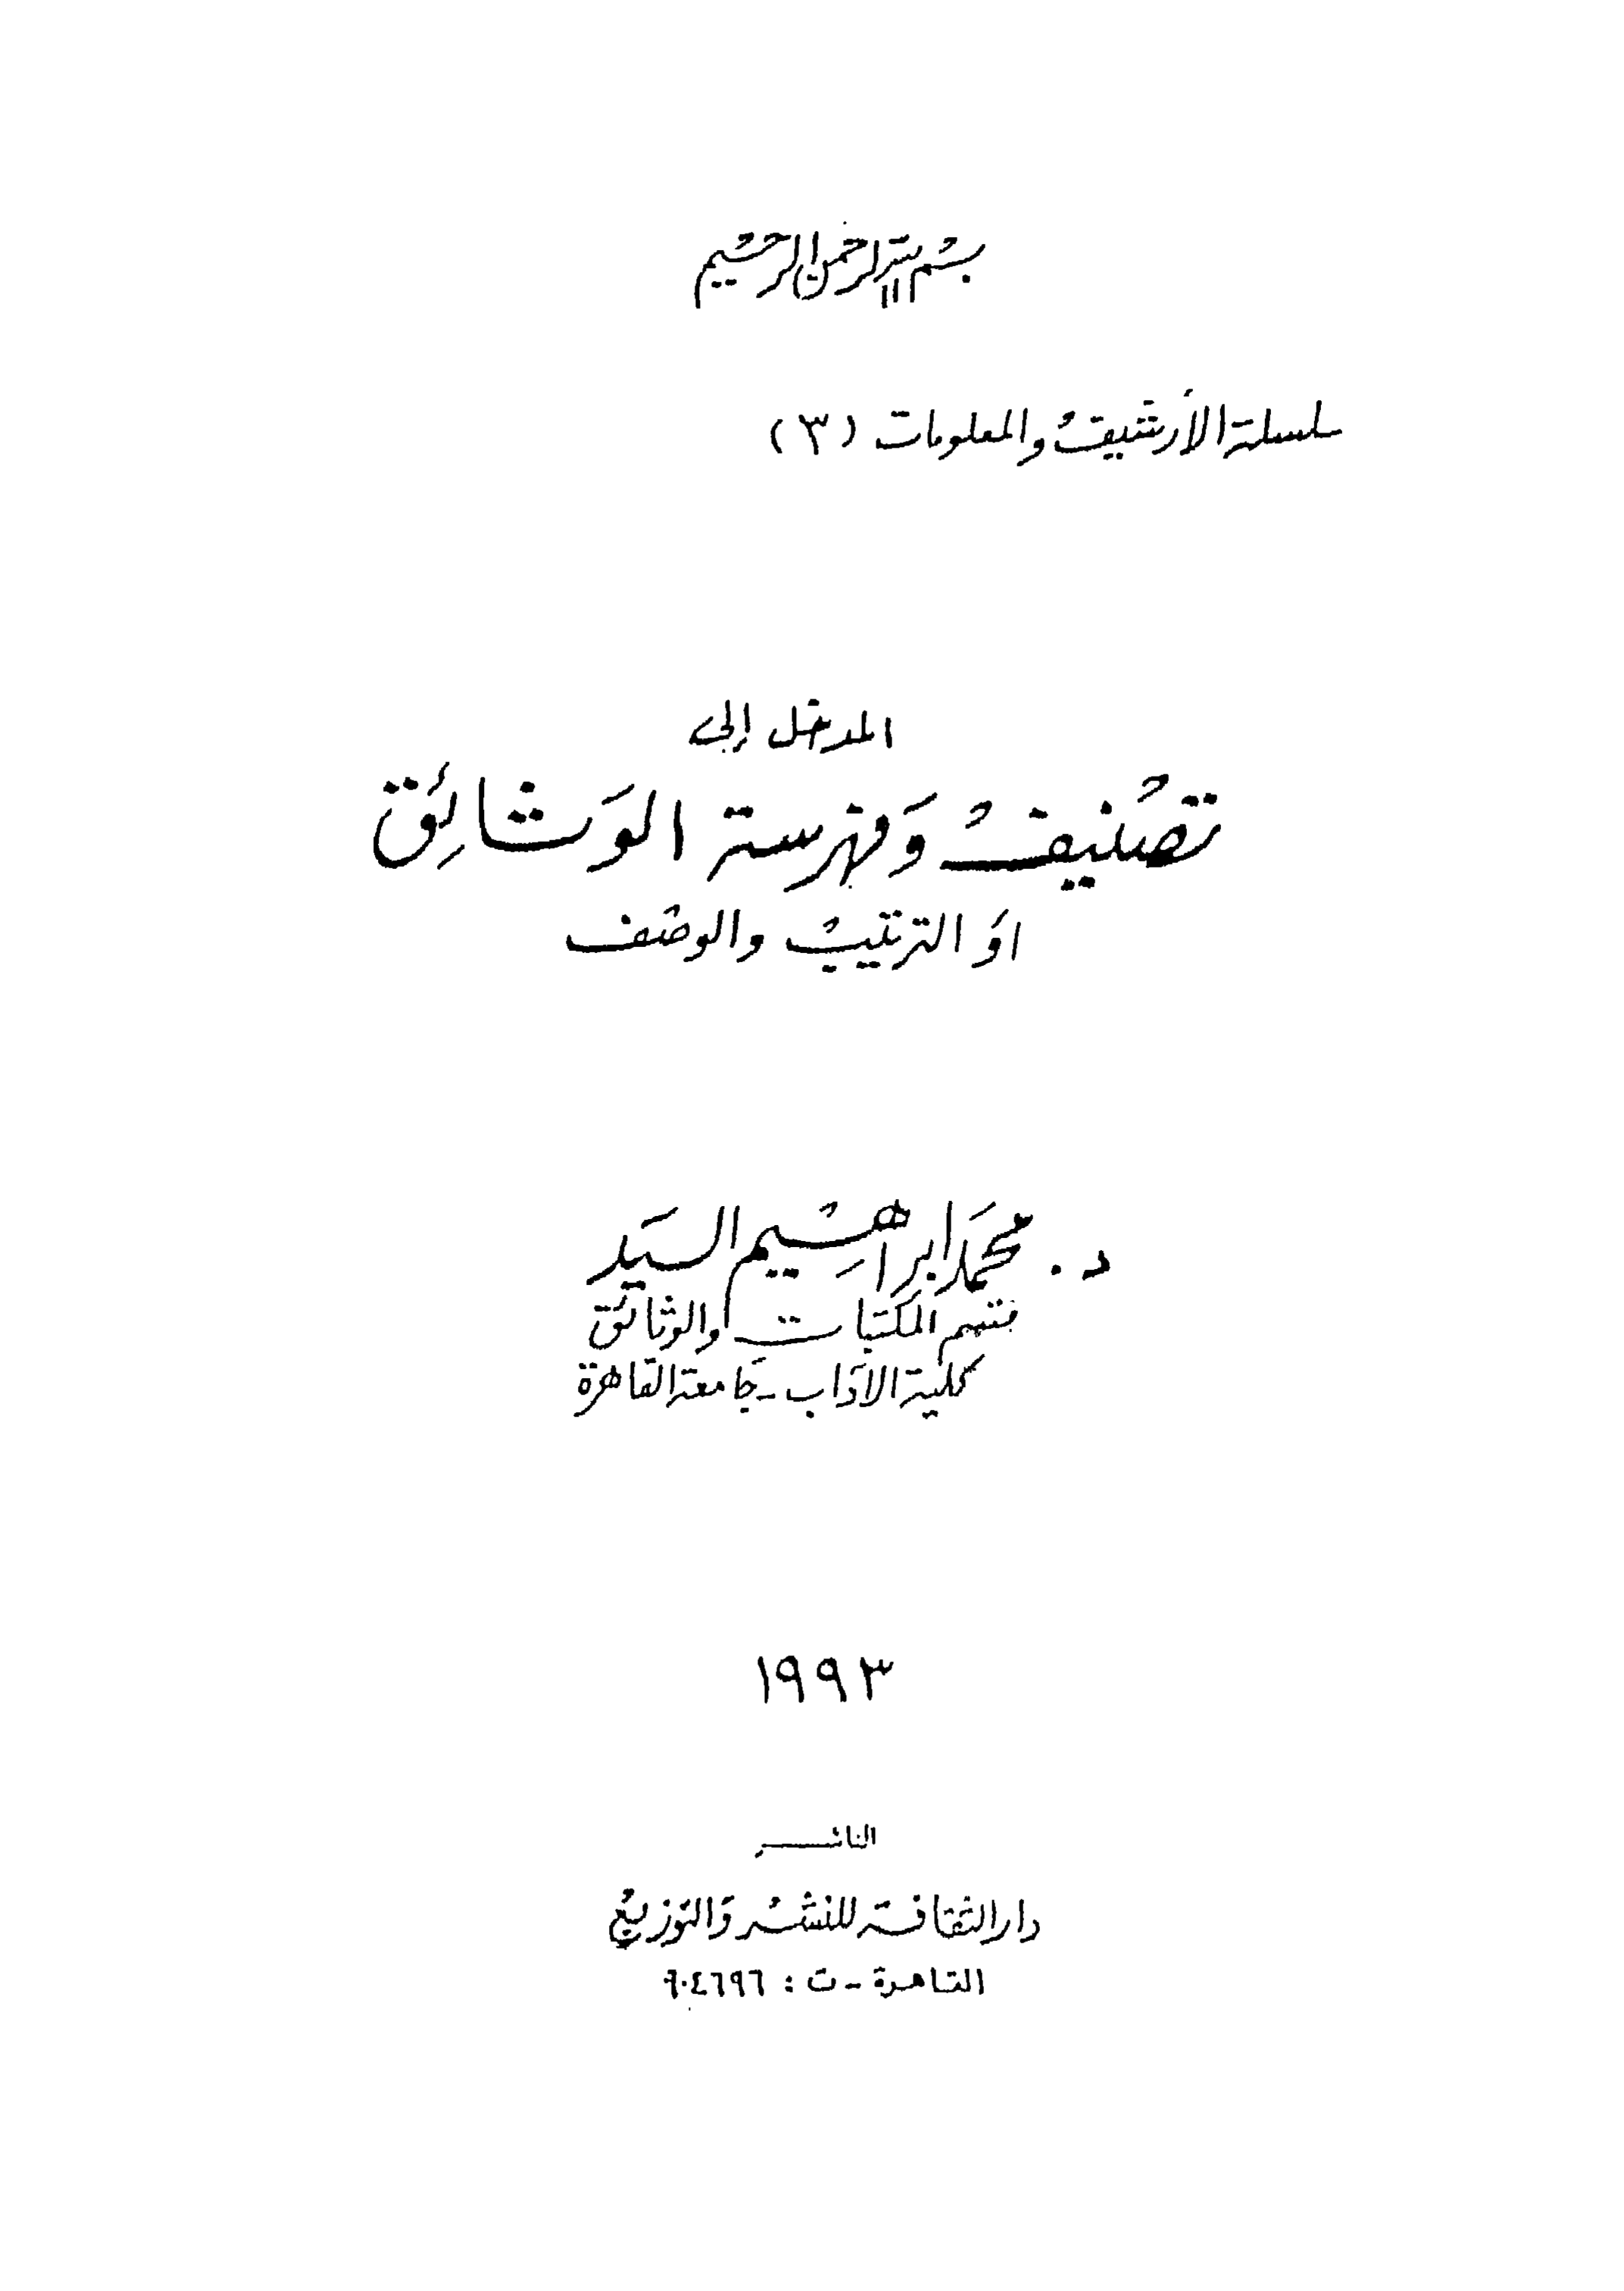 بسم الله الرحمن الرحيم
سلسلة الأرشيف والمعلومات (٣)
المدخل إلى
تصنيف وفهرسة الوثائق
او الترتيب والوصف
د. محمد ابراهيم السيد
قسم المكتبات والوثائق
كلية الآداب - جامعة القاهرة
١٩٩٣
الناشر
دار الثقافة للنشر والتوزيع
القاهرة - ت : ٩٠٤٦٩٦